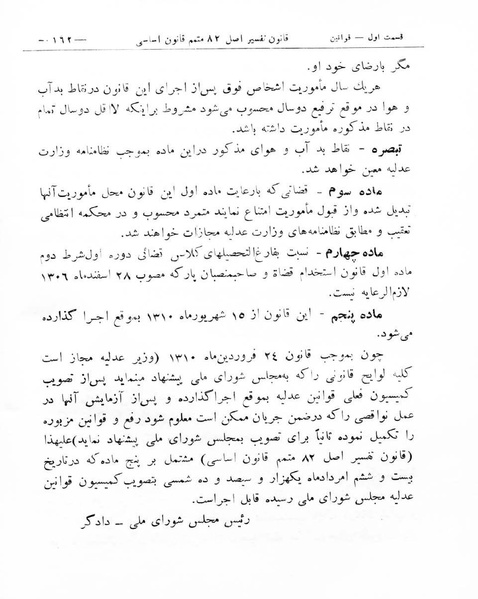 قسمت اول — قوانین قانون تفسیر اصل ۸۲ متمم قانون اساسی —۰۱۶۲-
مگر بارضای خود او.
هریك سال مأموریت اشخاص فوق پس‌از اجرای این قانون درنقاط بدآب
و هوا در موقع ترفیع دوسال محسوب می‌شود مشروط براینکه لااقل دوسال تمام
در نقاط مذکوره مأموریت داشته باشد.
تبصره - نقاط بد آب و هوای مذکور دراین ماده بموجب نظامنامه وزارت
عدلیه معین خواهد شد.
ماده سوم - قضاتی که بارعایت ماده اول این قانون محل مأموریت‌آنها
تبدیل شده واز قبول مأموریت امتناع نمایند متمرد محسوب و در محکمه انتظامی
تعقیب و مطابق نظامنامه‌های وزارت عدلیه مجازات خواهند شد.
ماده چهارم - نسبت بفارغ‌التحصیلهای‌کلاس قضائی دوره اول‌شرط دوم
ماده اول قانون استخدام قضاة و صاحبمنصبان پارکه مصوب ۲۸ اسفندماه ۱۳۰۶
لازم‌الرعایه نیست.
ماده پنجم - این قانون از ۱۵ شهریورماه ۱۳۱۰ بموقع اجرا گذارده
می‌شود.
چون بموجب قانون ۲۴ فروردین‌ماه ۱۳۱۰ (وزیر عدلیه مجاز است
کلیه لوایح قانونی راکه به‌مجلس شورای ملی پیشنهاد مینماید پس‌از تصویب
کمیسیون فعلی قوانین عدلیه بموقع اجراگذارده و پس‌از آزمایش آنها در
عمل نواقصی راکه درضمن جریان ممکن است معلوم شود رفع و قوانین مزبوره
را تکمیل نموده ثانیاً برای تصویب بمجلس شورای ملی پیشنهاد نماید)علیهذا
(قانون تفسیر اصل ۸۲ متمم قانون اساسی) مشتمل بر پنج ماده‌که درتاریخ
بیست و ششم امردادماه یکهزار و سیصد و ده شمسی بتصویب‌کمیسیون قوانین
عدلیه مجلس شورای ملی رسیده قابل اجراست.
رئیس مجلس شورای ملی — دادگر